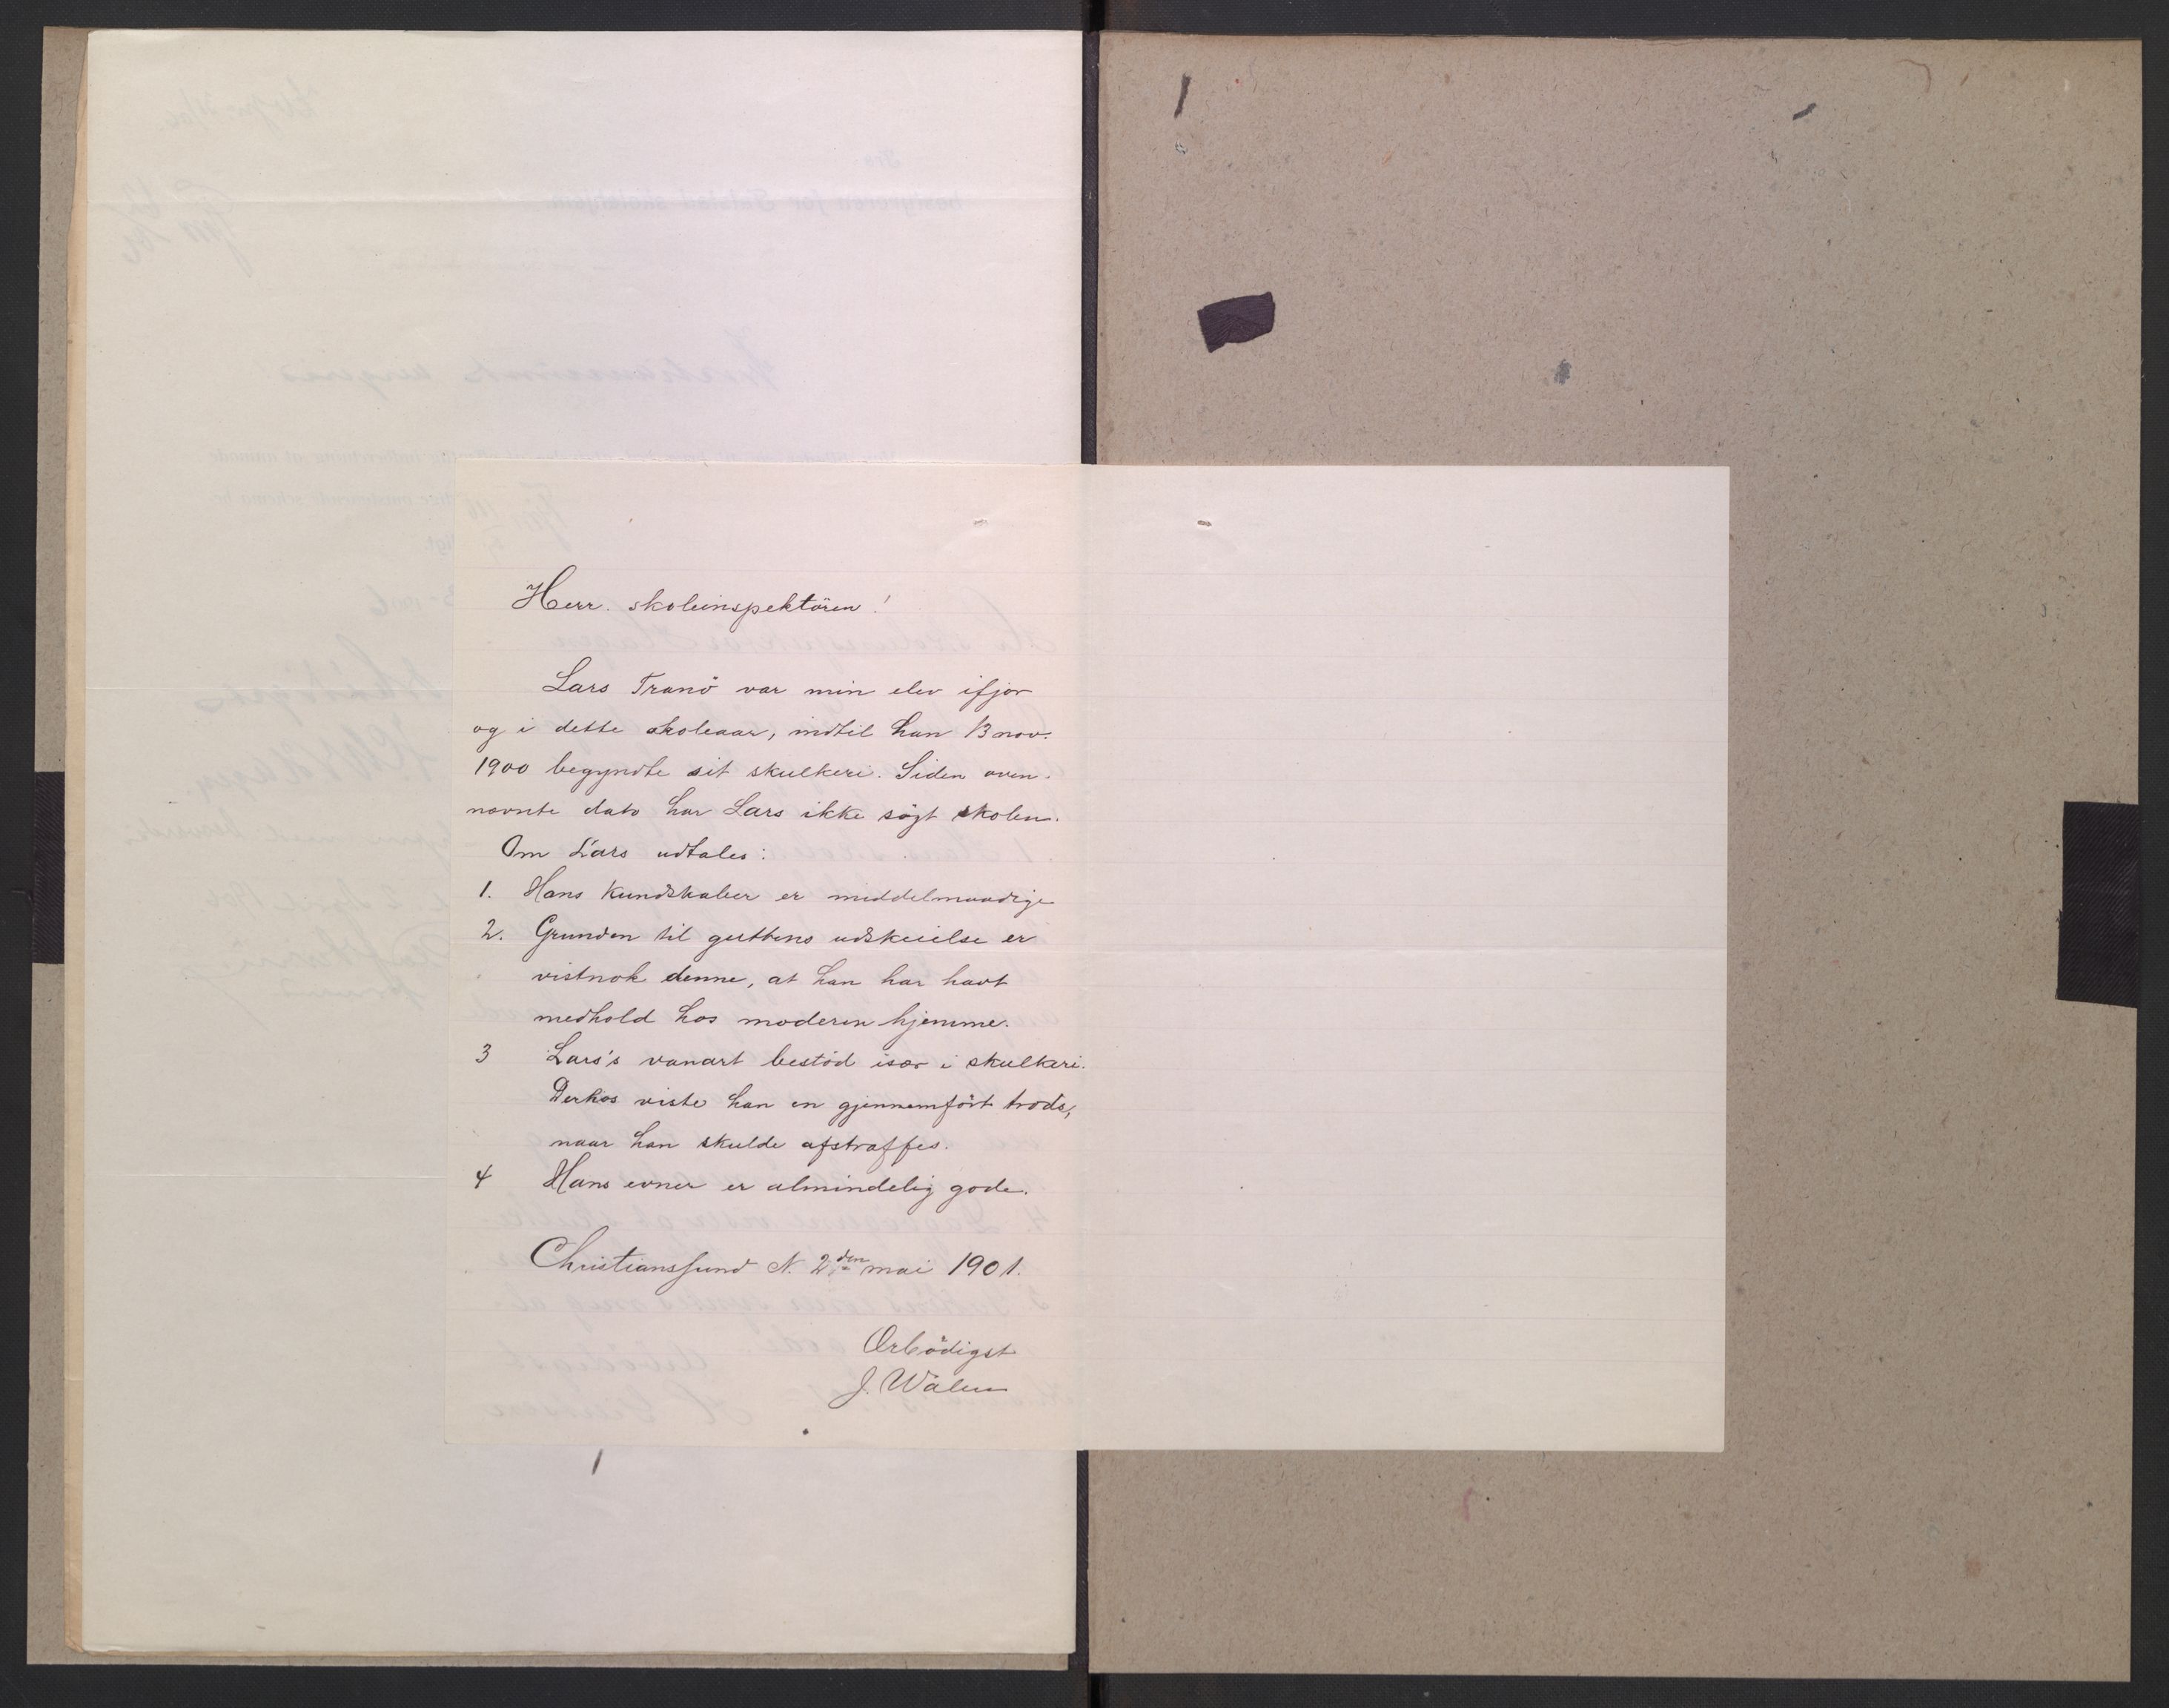 Herr. skoleinspektören!
Lars Tranö var min elev ifjor
og i dette skoleaar, indtil han 13 nov.
1900 begyndte sit skulkeri. Siden oven-
nævnte dato har Lars ikke søgt skolen.
Om Lars udtales:
1. Hans Kundskaber er middelmaadige
2. Grunden til guttens udskeielse er
vistnok denne, at han har havt
medhold hos moderen hjemme.
3 Lars's vanart bestod især i skulkeri.
Derhos viste han en gjennemfört trods,
naar han skulde afstraffes.
4 Hans evner er almindelig gode.
Christianssund N. 2den mai 1901.
Ærbödigst
J. Wälen